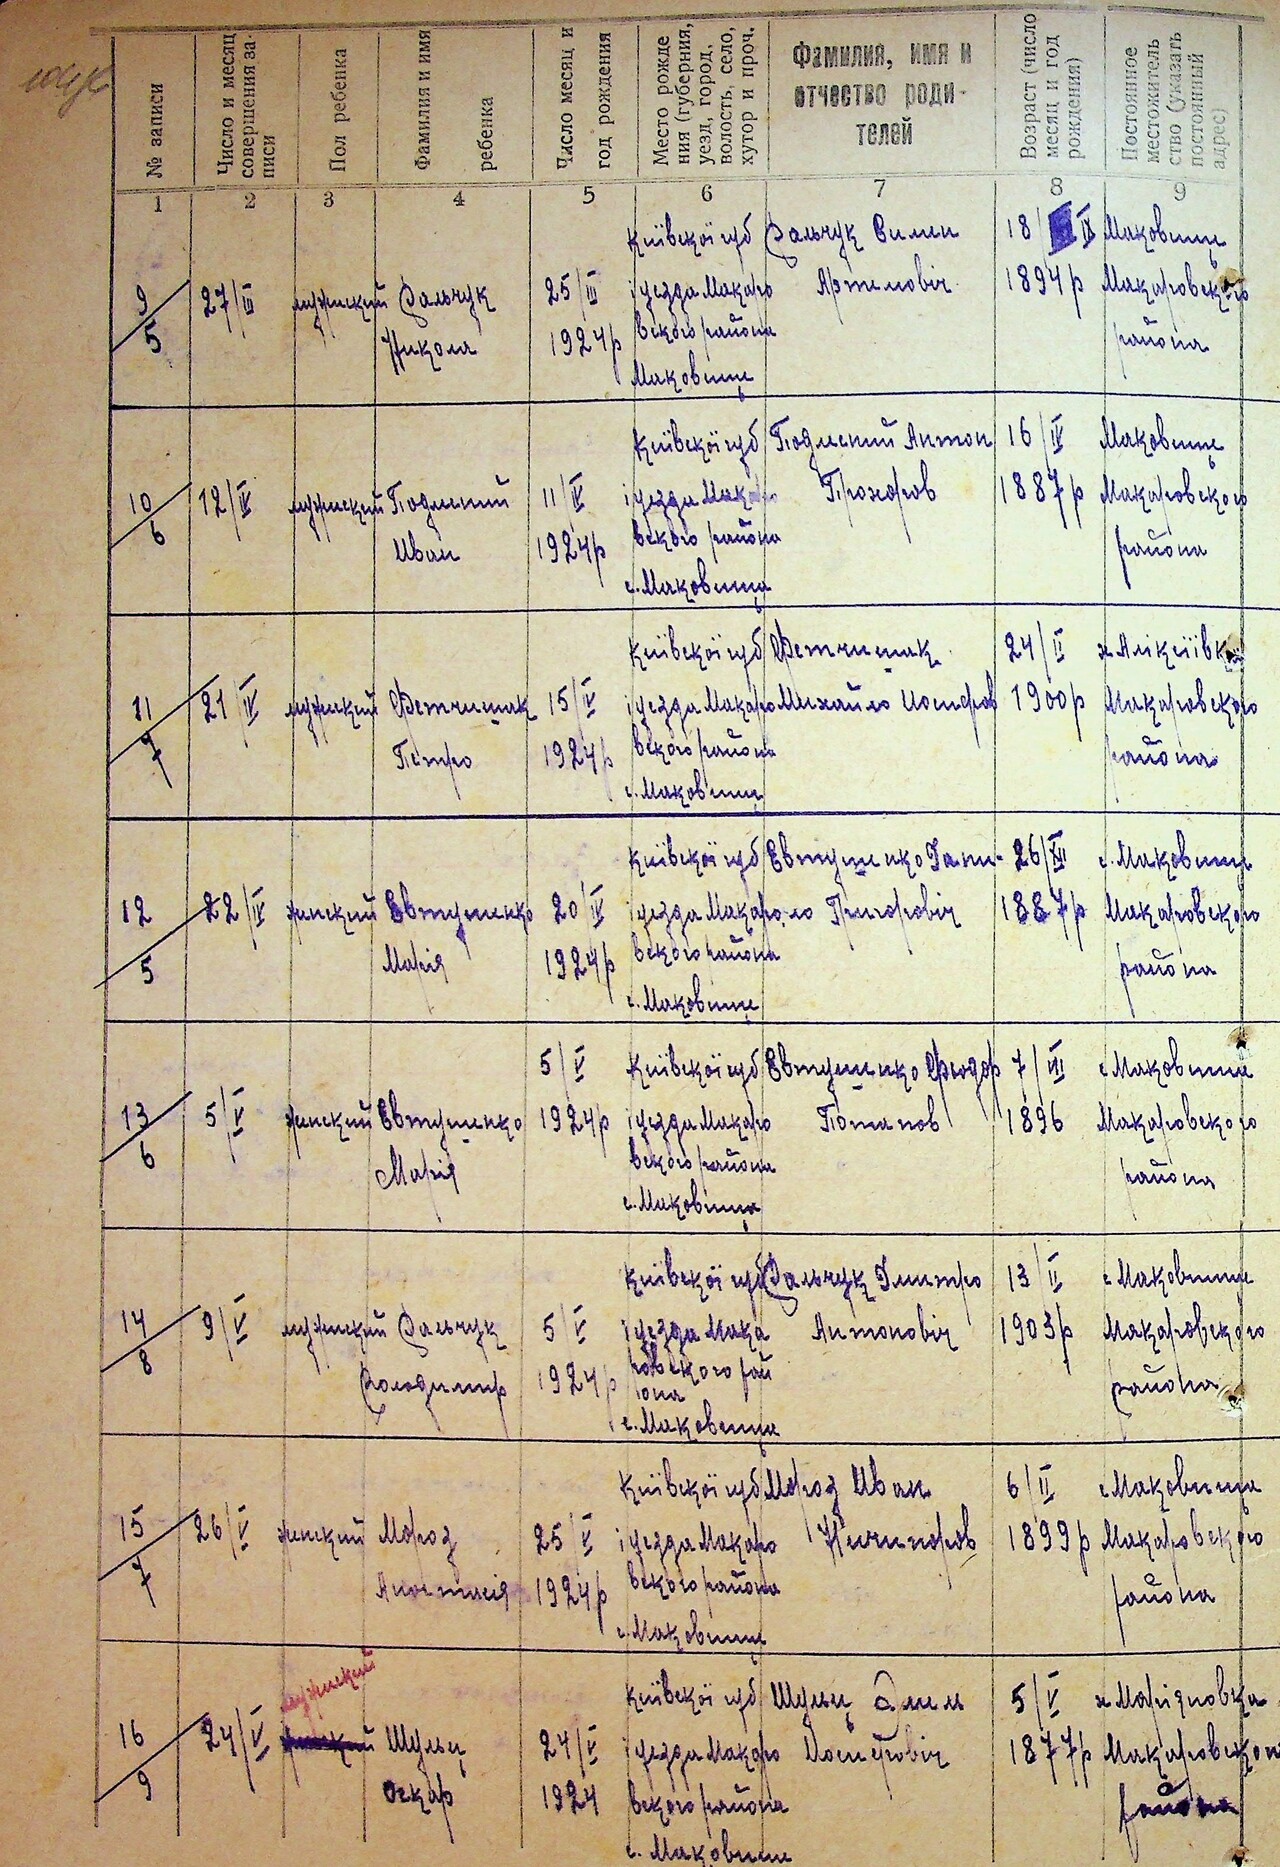 № записи
Число и месяц
совершения за-
писи
Пол ребенка
Фамилия и имя
ребенка
Число месяц и
год рождения
Место рожде
ния (губерния,
уезд, город,
волость, село,
хутор и проч.
Фамилия, имя и
отчество роди-
телей
Возраст (число
месяц и год
рождения)
Постоянное
местожитель
ство (указать
постоянный
адрес)
1 2 3 4 5 6 7 8 9
9/5
27/III
мужский
Сальчук
Никола
25/III
1924р
Київскої губ
і уезда Макаро
вского района
Маковище
Сальчук Симен
Артемович
18/ IX
1894р
Маковище
Макаровского
района
10/6
12/IV
мужский
Подмений
Иван
11/IV
1924р
Київскої губ
і уезда Макаро
вского района
с. Маковища
Подмений Антон
Прохоров
16/IV
1887р
Маковище
Макаровского
района
11/7
21/IV
мужский
Петро
15/IV
1924р
Київскої губ
і уезда Макаро
вского района
с. Маковище
Михайло Иосифов
24/II
1900р
Макаровского
района
12/5
22/IV
женский
Евтушенко
Марія
20/IV
1924р
Київскої губ
і уезда Макаро
вского района
с. Маковище
Евтушенко
Григорович
26/XII
1887р
с. Маковище
Макаровского
района
13/6
5/V
женский
Евтушенко
Марія
5/V
1924р
Київскої губ
і уезда Макаро
вского района
с. Маковища
Евтушенко Федор
Потапов
7/VIII
1896
с Маковища
Макаровского
района
14/8
9/V
мужский
Сальчук
Володимир
5/V
1924р
Київскої губ
і уезда Мака
ровского рай
іона
с. Маковища
Сальчук Дмитро
Антонович
13/II
1903р
с Маковище
Макаровского
района
15/7
26/V
женский
Мороз
Анастасія
25/V
1924р
Київскої губ
і уезда Макаро
вского района
с. Маковище
Мороз Иван
Ничипоров
6/II
1899р
с Маковища
Макаровского
района
16/9
24/V
мужский
Шульц
Оскар
24/V
1924
Київскої губ
і уезда Макаро
вского района
с. Маковище
Шульц Эмил
Иосифович
5/V
1877р
х Маріяновка
Макаровского
района